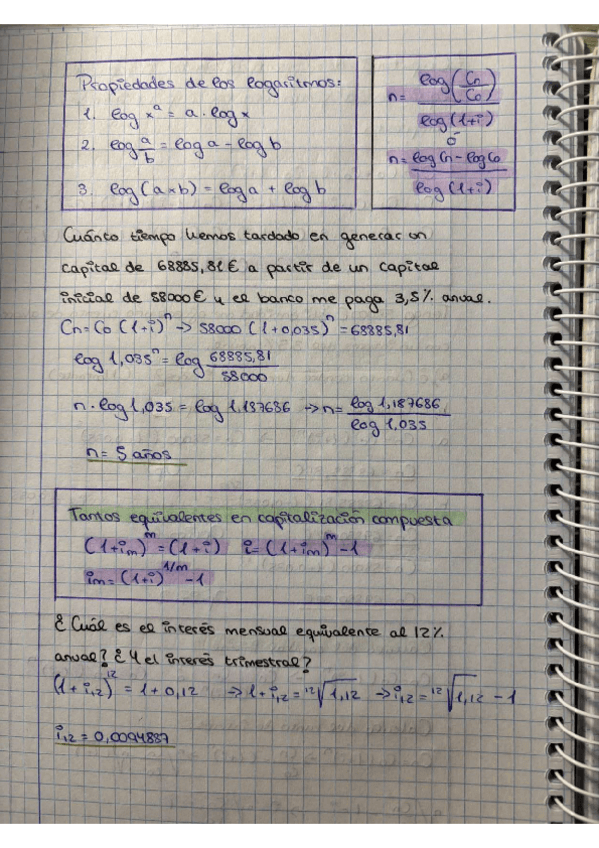 Propiedades de los logaritmos:
1. log x^a = a · log x
2. log a/b = log a - log b
3. log (a x b) = log a + log b
n = log (Cn/Co) / log (1+i)
ó
n = log Cn - log Co / log (1+i)
Cuánto tiempo hemos tardado en generar un
capital de 68885,81 € a partir de un capital
inicial de 58000 € y el banco me paga 3,5% anual.
Cn = Co (1+i)^n -> 58000 (1+0,035)^n = 68885,81
log 1,035^n = log 68885,81 / 58000
n · log 1,035 = log 1,187686 -> n = log 1,187686 / log 1,035
n = 5 años
Tantos equivalentes en capitalización compuesta
(1+im)^m = (1+i) i = (1+im)^m - 1
im = (1+i)^1/m - 1
¿Cuál es el interés mensual equivalente al 12%
anual? ¿Y el interés trimestral?
(1+i12)^12 = 1+0,12 -> 1+i12 = 12√1,12 -> i12 = 12√1,12 - 1
i12 = 0,0094887